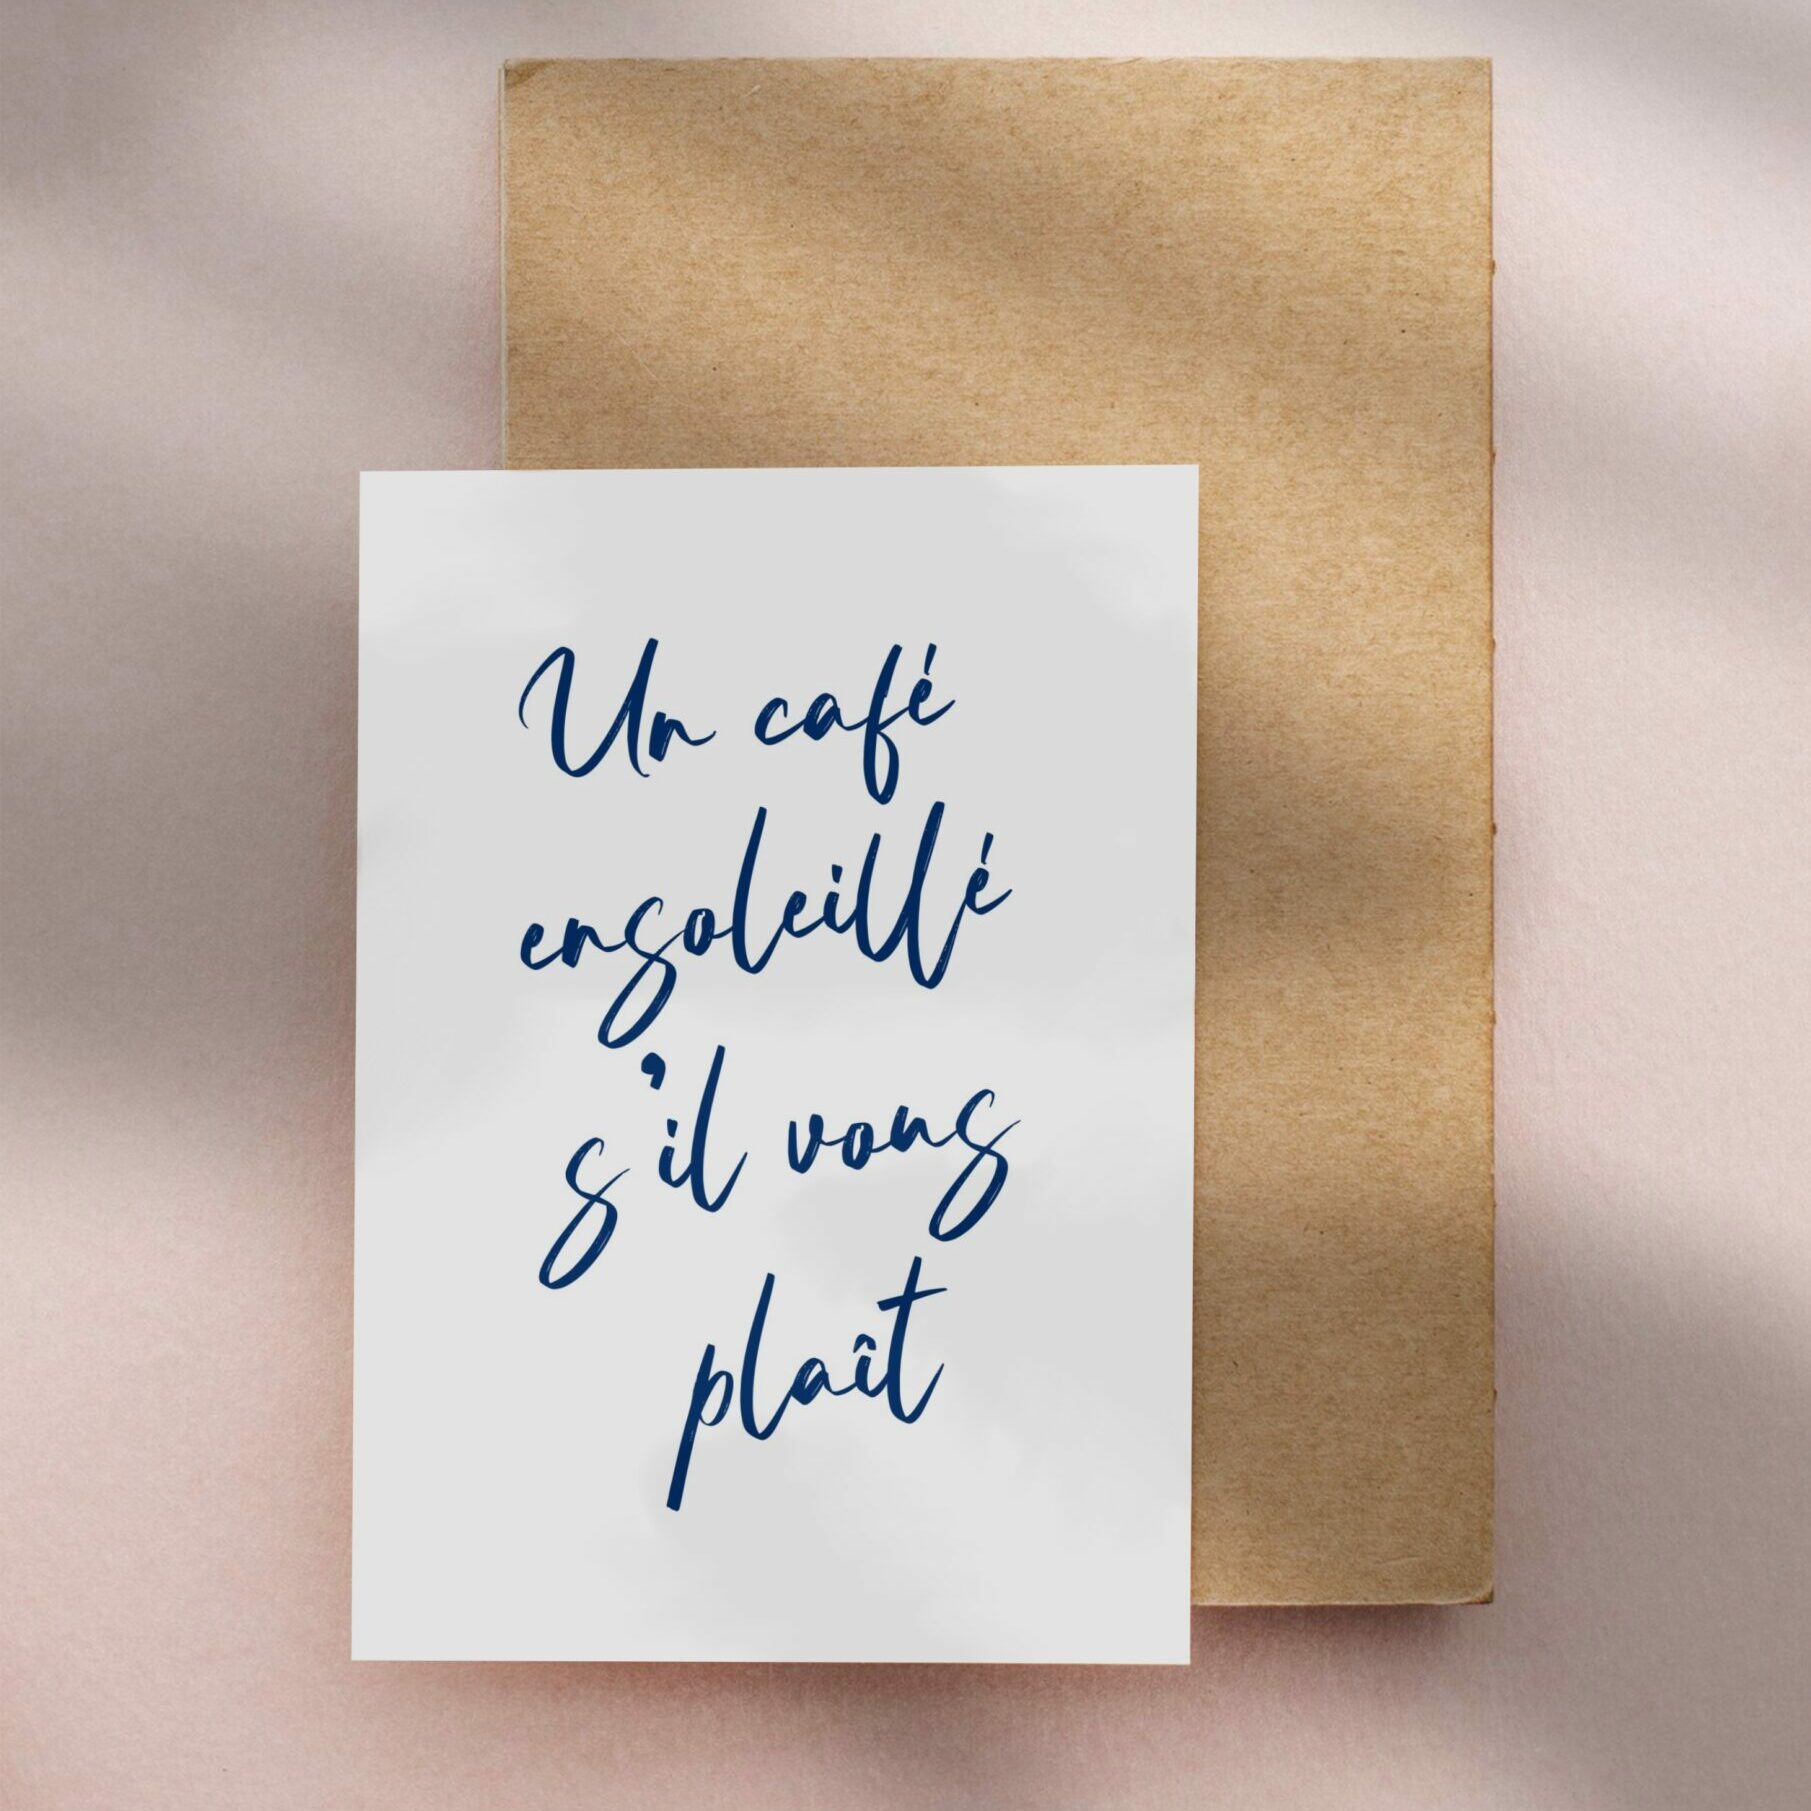 Un café
ensoleillé
s'il vous
plaît